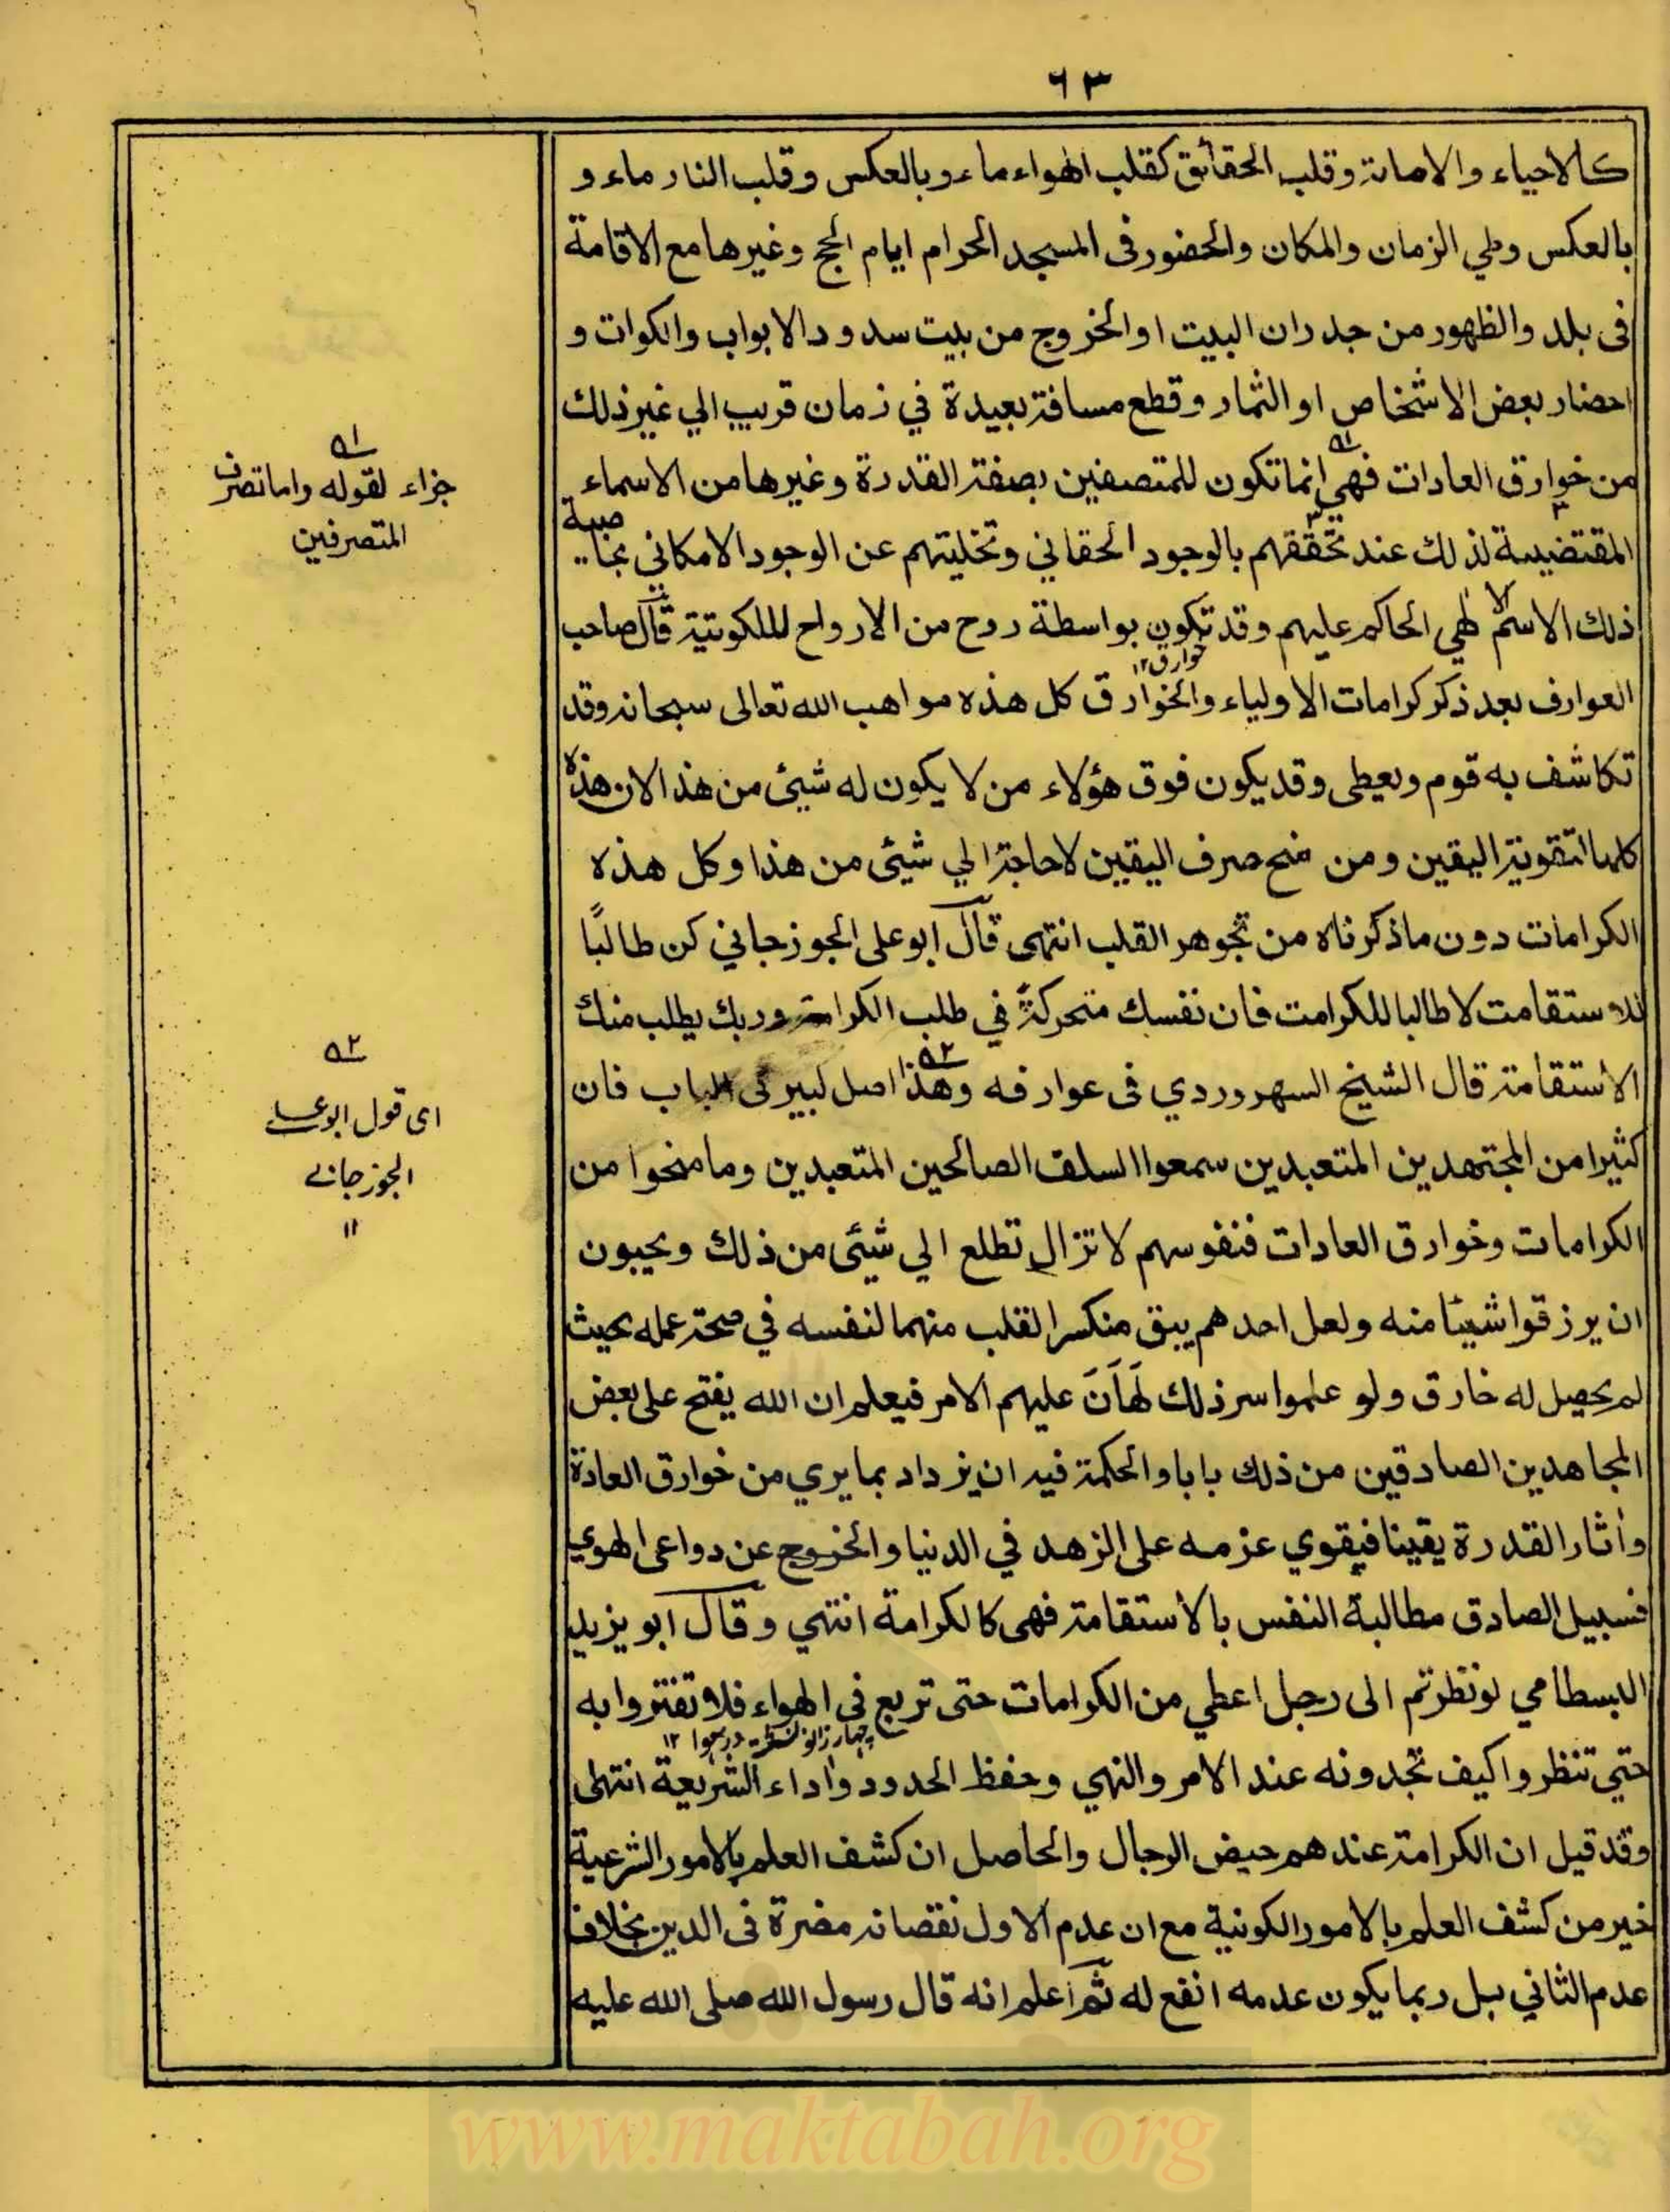 ٦٣
كالاحياء والاماتة وقلب الحقائق كقلب الهواء ماء وبالعكس وقلب النار ماء و
بالعكس وطي الزمان والمكان والحضور فى المسجد الحرام ايام الحج وغيرها مع الاقامة
فى بلد والظهور من جدران البيت او الخروج من بيت سدود الابواب والكوات و
احضار بعض الاشخاص او الثمار وقطع مسافة بعيدة في زمان قريب الي غير ذلك
من خوارق العادات فهي انما تكون للمتصفين بصفة القدرة وغيرها من الاسماء
المقتضية لذلك عند تحققهم بالوجود الحقاني وتخليتهم عن الوجود الامكاني بخاصية
ذلك الاسم الالهي الحاكم عليهم وقد تكون بواسطة روح من الارواح للملكوتية قال صاحب
خوارق ١٢
العوارف بعد ذكر كرامات الاولياء والخوارق كل هذه مواهب الله تعالى سبحانه وقد
تكاشف به قوم ويعطى وقد يكون فوق هؤلاء من لا يكون له شيئ من هذا لان هذه
كلها لتقوية اليقين ومن منح صرف اليقين لا حاجة الي شيئ من هذا وكل هذه
الكرامات دون ما ذكرناه من تجوهر القلب انتهى قال ابو على الجوزجاني كن طالبًا
للاستقامت لا طالبا للكرامت فان نفسك متحركة في طلب الكرامة وربك يطلب منك
الاستقامة قال الشيخ السهروردي فى عوارفه وهذا اصل لبير فى الباب فان
كثيرا من المجتهدين المتعبدين سمعوا السلف الصالحين المتعبدين وما منحوا من
الكرامات وخوارق العادات فنفوسهم لا تزال تطلع الي شيئ من ذلك ويحبون
ان يرزقوا شيئا منه ولعل احدهم يبق منكسر القلب متهما لنفسه في صحة عمله بحيث
لم يحصل له خارق ولو علموا سر ذلك لَهَاَنَ عليهم الامر فيعلم ان الله يفتح على بعض
المجاهدين الصادقين من ذلك بابا والحكمة فيه ان يزداد بما يري من خوارق العادة
وأثار القدرة يقينا فيقوي عزمه على الزهد في الدنيا والخروج عن دواعى الهوي
فسبيل الصادق مطالبة النفس بالاستقامة فهى كالكرامة انتهي وقال ابو يزيد
البسطامي لو نظرتم الى رجل اعطي من الكرامات حتى تربع فى الهواء فلا تغتروا به
حتي تنظروا كيف تجدونه عند الامر والنهي وحفظ الحدود واداء الشريعة انتهى
وقد قيل ان الكرامة عندهم حيض الرجال والحاصل ان كشف العلم بالامور الشرعية
خير من كشف العلم بالامور الكونية مع ان عدم الاول نقصانه مضرة فى الدين بخلاف
عدم الثاني بل ربما يكون عدمه انفع له ثم اعلم انه قال رسول الله صلى الله عليه
٥١
جزاء لقوله واما تصرف
المتصرفين
٥٢
اى قول ابو على
الجوزجانى
١٢
www.maktabah.org